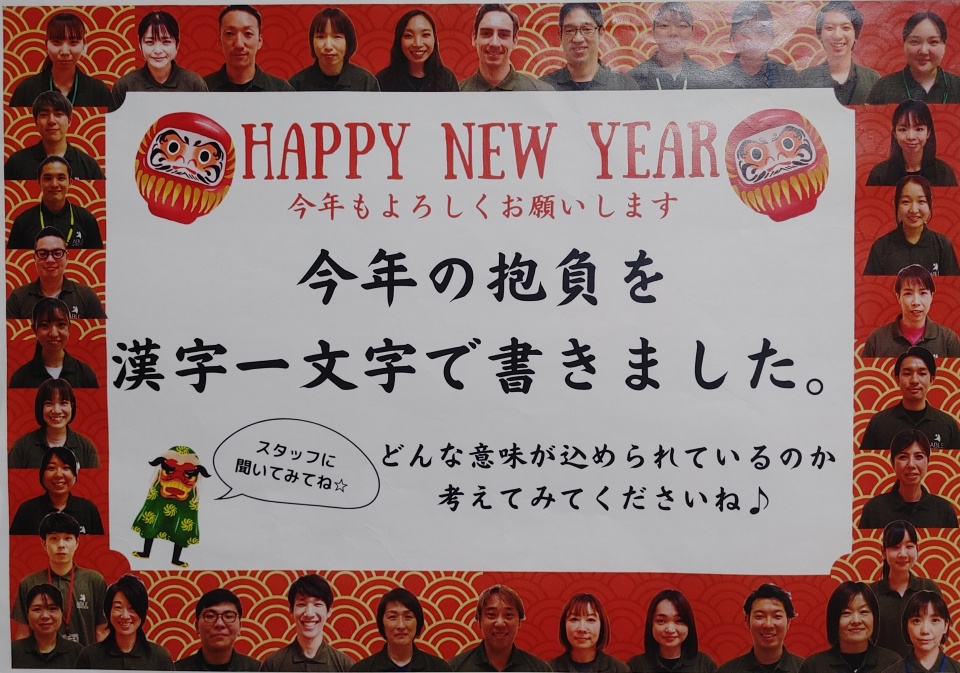 HAPPY NEW YEAR
今年もよろしくお願いします
今年の抱負を
漢字一文字で書きました。
スタッフに
聞いてみてね☆
どんな意味が込められているのか
考えてみてくださいね♪
ABLE